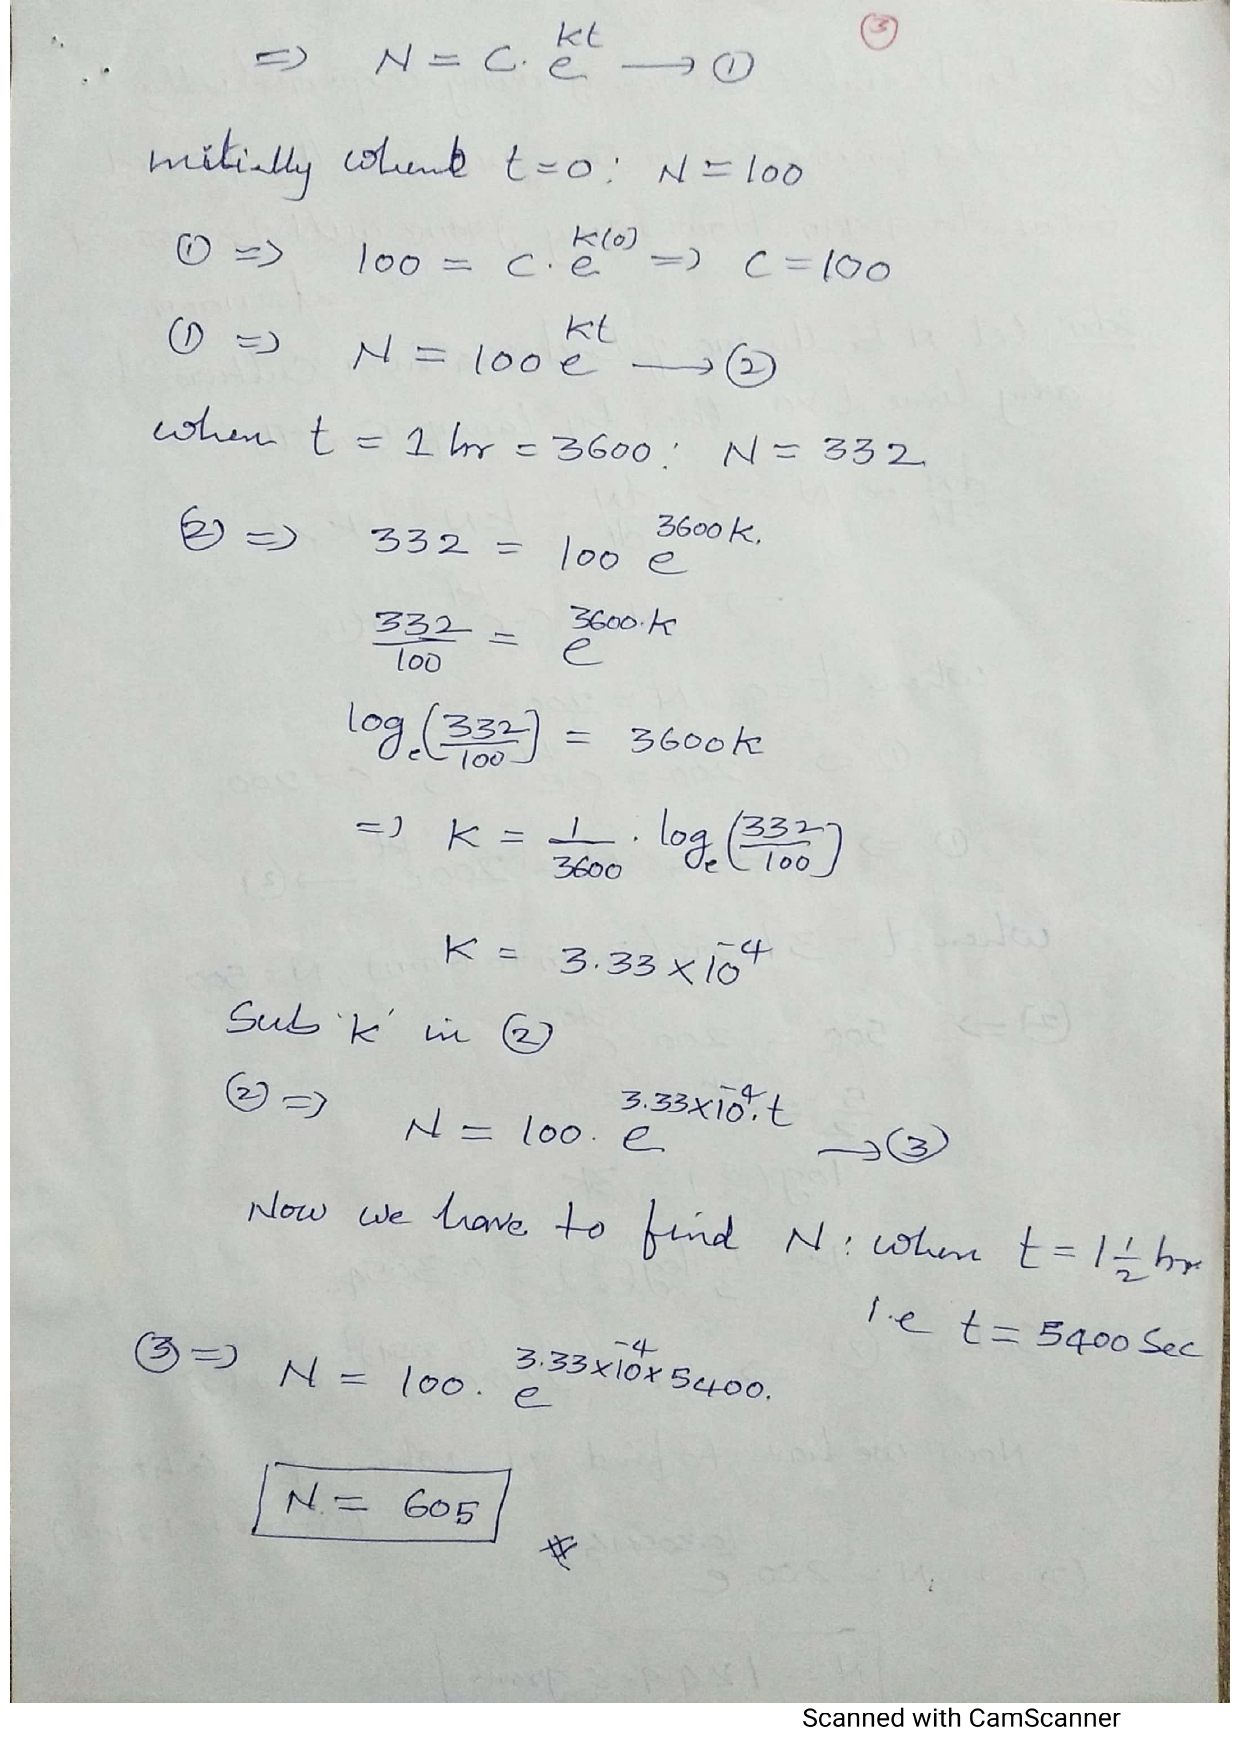 ③
=> N = C. e^{kt} → ①
initially when t=0: N=100
① => 100 = C. e^{k(0)} => C=100
① => N = 100 e^{kt} → ②
when t = 1 hr = 3600: N = 332
② => 332 = 100 e^{3600k}.
332/100 = e^{3600.k}
log_e(332/100) = 3600k
=> K = 1/3600 . log_e(332/100)
K = 3.33 x 10^{-4}
Sub 'k' in ②
② => N = 100. e^{3.33x10^{-4}.t} → ③
Now we have to find N: when t = 1 1/2 hr
i.e t = 5400 Sec
③ => N = 100. e^{3.33x10^{-4}x5400}.
N = 605
Scanned with CamScanner